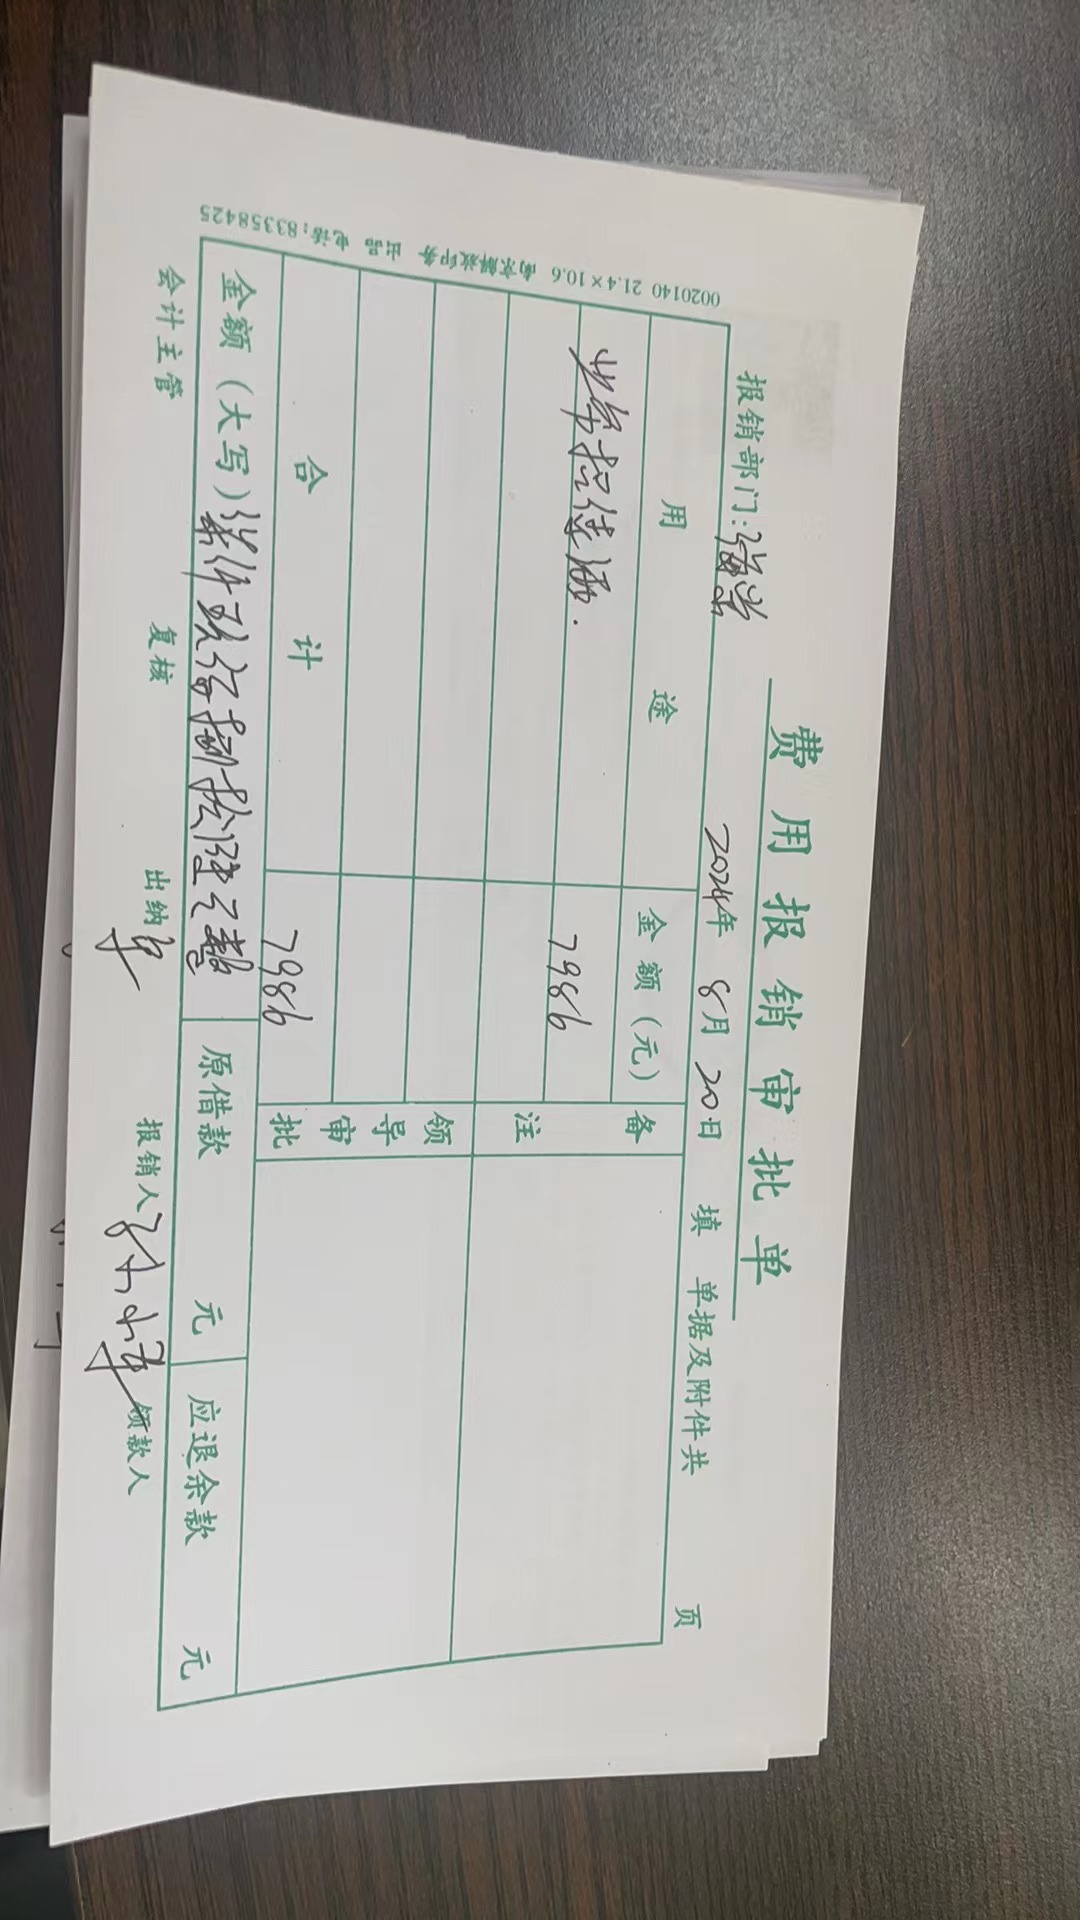 费用报销审批单
报销部门: 2024年 8月 20日 填 单据及附件共 页
用途 金额（元） 备注
业务招待酒. 7986
领导审批
合计 7986
金额（大写）柒仟玖佰捌拾陆元整 原借款 元 应退余款 元
会计主管 复核 出纳 报销人 领款人
0020140 21.4×10.6 南京解放印务 出品 电话:83358425